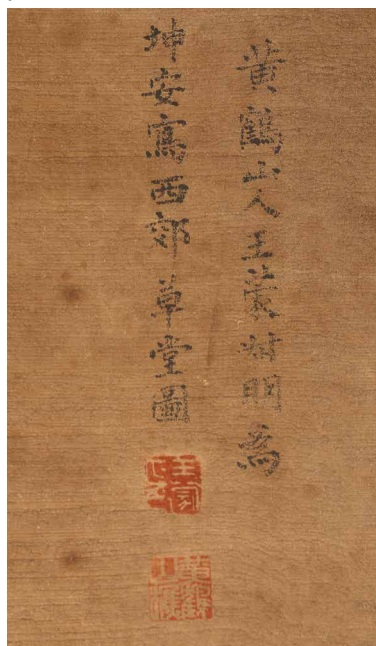 黄鶴山人王蒙叔明為
坤安寫西郊草堂圖